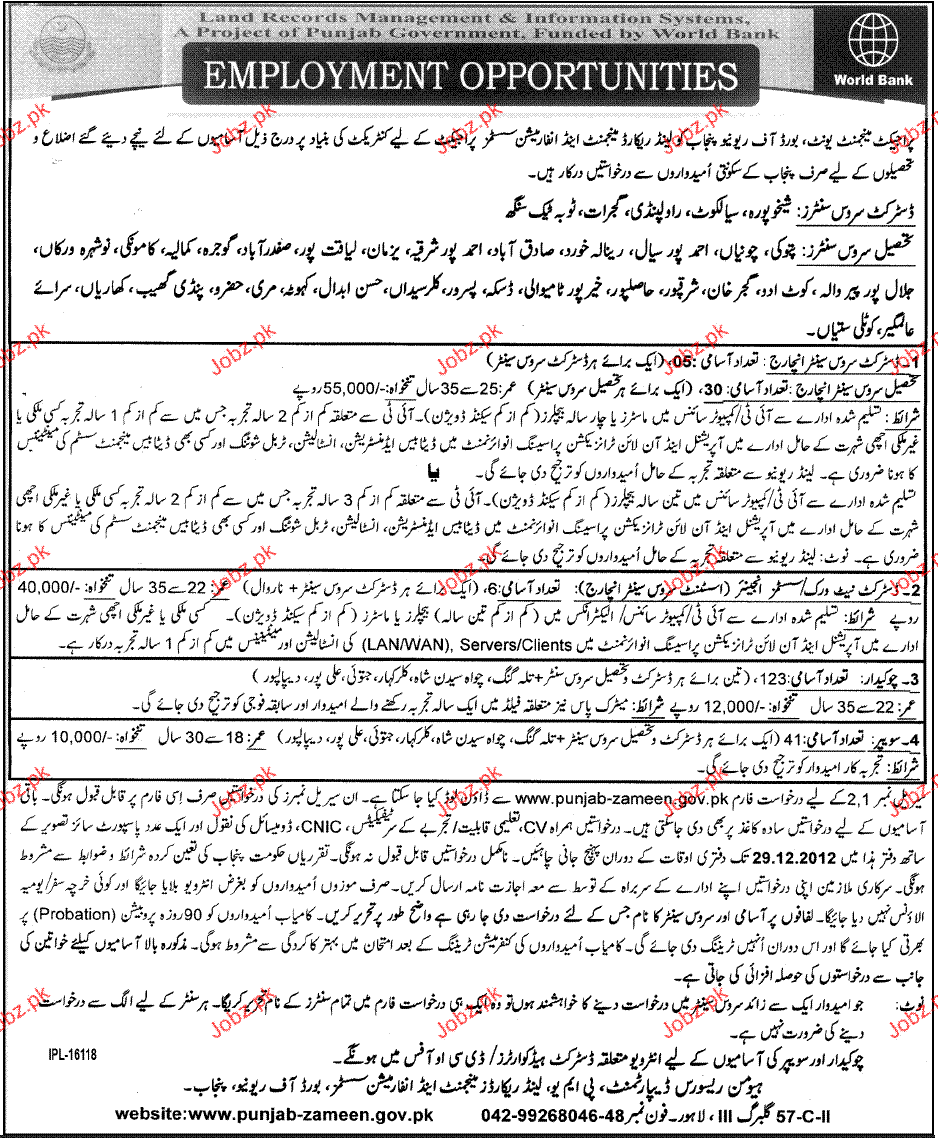 Land Records Management & Information Systems,
A Project of Punjab Government, Funded by World Bank
EMPLOYMENT OPPORTUNITIES
World Bank
پراجیکٹ مینجمنٹ یونٹ، بورڈ آف ریونیو پنجاب کو لینڈ ریکارڈ مینجمنٹ اینڈ انفارمیشن سسٹمز پراجیکٹ کے لیے کنٹریکٹ کی بنیاد پر درج ذیل آسامیوں کے لئے نیچے دیئے گئے اضلاع و
تحصیلوں کے لیے صرف پنجاب کے سکونتی اُمیدواروں سے درخواستیں درکار ہیں۔
ڈسٹرکٹ سروس سنٹرز: شیخوپورہ، سیالکوٹ، راولپنڈی، گجرات، ٹوبہ ٹیک سنگھ
تحصیل سروس سنٹرز: پتوکی، چونیاں، احمد پور سیال، رینالہ خورد، صادق آباد، احمد پور شرقیہ، یزمان، لیاقت پور، صفدرآباد، گوجرہ، کمالیہ، کامونکی، نوشہرہ ورکاں،
جلال پور پیر والہ، کوٹ ادو، گجر خان، شرقپور، حاصلپور، خیر پور ٹامیوالی، ڈسکہ، پسرور، کلرسیداں، حسن ابدال، کہوٹہ، مری، حضرو، پنڈی گھیب، کھاریاں، سرائے
عالمگیر، کوٹلی ستیاں۔
1۔ ڈسٹرکٹ سروس سینٹر انچارج: تعداد آسامی: 05، (ایک برائے ہر ڈسٹرکٹ سروس سینٹر)
تحصیل سروس سینٹر انچارج: تعداد آسامی: 30، (ایک برائے ہر تحصیل سروس سینٹر) عمر: 25 سے 35 سال تنخواہ: -/55,000 روپے
شرائط: تسلیم شدہ ادارے سے آئی ٹی/کمپیوٹر سائنس میں ماسٹرز یا چار سالہ بیچلرز (کم از کم سیکنڈ ڈویژن)۔ آئی ٹی سے متعلقہ کم از کم 2 سالہ تجربہ جس میں سے کم از کم 1 سالہ تجربہ کسی ملکی یا
غیر ملکی اچھی شہرت کے حامل ادارے میں آپریشنل اینڈ آن لائن ٹرانزیکشن پراسیسنگ انوائرنمنٹ میں ڈیٹابیس ایڈمنسٹریشن، انسٹالیشن، ٹربل شوٹنگ اور کسی بھی ڈیٹابیس مینجمنٹ سسٹم کی مینٹیننس
کا ہونا ضروری ہے۔ لینڈ ریونیو سے متعلقہ تجربہ کے حامل اُمیدواروں کو ترجیح دی جائے گی۔ یا
تسلیم شدہ ادارے سے آئی ٹی/کمپیوٹر سائنس میں تین سالہ بیچلرز (کم از کم سیکنڈ ڈویژن)۔ آئی ٹی سے متعلقہ کم از کم 3 سالہ تجربہ جس میں سے کم از کم 2 سالہ تجربہ کسی ملکی یا غیر ملکی اچھی
شہرت کے حامل ادارے میں آپریشنل اینڈ آن لائن ٹرانزیکشن پراسیسنگ انوائرنمنٹ میں ڈیٹابیس ایڈمنسٹریشن، انسٹالیشن، ٹربل شوٹنگ اور کسی بھی ڈیٹابیس مینجمنٹ سسٹم کی مینٹیننس کا ہونا
ضروری ہے۔ نوٹ: لینڈ ریونیو سے متعلقہ تجربہ کے حامل اُمیدواروں کو ترجیح دی جائے گی۔
2۔ ڈسٹرکٹ نیٹ ورک/سسٹمز انجینئر (اسسٹنٹ سروس سینٹر انچارج): تعداد آسامی: 6، (ایک برائے ہر ڈسٹرکٹ سروس سینٹر + نارووال) عمر: 22 سے 35 سال تنخواہ: -/40,000
روپے شرائط: تسلیم شدہ ادارے سے آئی ٹی/کمپیوٹر سائنس/الیکٹرانکس میں (کم از کم تین سالہ) بیچلرز یا ماسٹرز (کم از کم سیکنڈ ڈویژن)۔ کسی ملکی یا غیر ملکی اچھی شہرت کے حامل
ادارے میں آپریشنل اینڈ آن لائن ٹرانزیکشن پراسیسنگ انوائرنمنٹ میں (LAN/WAN), Servers/Clients کی انسٹالیشن اور مینٹیننس میں کم از کم 1 سالہ تجربہ درکار ہے۔
3۔ چوکیدار: تعداد آسامی: 123، (تین برائے ہر ڈسٹرکٹ و تحصیل سروس سنٹر + تلہ گنگ، چواہ سیدن شاہ، کلرکہار، جتوئی، علی پور، دیپالپور)
عمر: 22 سے 35 سال تنخواہ: -/12,000 روپے شرائط: میٹرک پاس نیز متعلقہ فیلڈ میں ایک سالہ تجربہ رکھنے والے امیدوار اور سابقہ فوجی کو ترجیح دی جائے گی۔
4۔ سویپر: تعداد آسامی: 41 (ایک برائے ہر ڈسٹرکٹ و تحصیل سروس سینٹر + تلہ گنگ، چواہ سیدن شاہ، کلرکہار، جتوئی، علی پور، دیپالپور) عمر: 18 سے 30 سال تنخواہ: -/10,000 روپے
شرائط: تجربہ کار امیدوار کو ترجیح دی جائے گی۔
سیریل نمبر 2,1 کے لیے درخواست فارم www.punjab-zameen.gov.pk سے ڈاؤن لوڈ کیا جا سکتا ہے۔ ان سیریل نمبرز کی درخواستیں صرف اِسی فارم پر قابل قبول ہونگی۔ باقی
آسامیوں کے لیے درخواستیں سادہ کاغذ پر بھی دی جا سکتی ہیں۔ درخواستیں ہمراہ CV، تعلیمی قابلیت/تجربے کے سرٹیفکیٹس، CNIC، ڈومیسائل کی نقول اور ایک عدد پاسپورٹ سائز تصویر کے
ساتھ دفتر ہذا میں 29.12.2012 تک دفتری اوقات کے دوران پہنچ جانی چاہئیں۔ نامکمل درخواستیں قابل قبول نہ ہونگی۔ تقرریاں حکومت پنجاب کی تعین کردہ شرائط و ضوابط سے مشروط
ہونگی۔ سرکاری ملازمین اپنی درخواستیں اپنے ادارے کے سربراہ کے توسط سے معہ اجازت نامہ ارسال کریں۔ صرف موزوں اُمیدواروں کو بغرض انٹرویو بلایا جائیگا اور کوئی خرچہ سفر/یومیہ
الاؤنس نہیں دیا جائیگا۔ لفافوں پر آسامی اور سروس سینٹر کا نام جس کے لئے درخواست دی جا رہی ہے واضح طور پر تحریر کریں۔ کامیاب اُمیدواروں کو 90 روزہ پروبیشن (Probation) پر
بھرتی کیا جائے گا اور اس دوران اُنہیں ٹریننگ دی جائے گی۔ کامیاب اُمیدواروں کی کنفرمیشن ٹریننگ کے بعد امتحان میں بہتر کارکردگی سے مشروط ہوگی۔ مذکورہ بالا آسامیوں کیلئے خواتین کی
جانب سے درخواستوں کی حوصلہ افزائی کی جاتی ہے۔
نوٹ: جو امیدوار ایک سے زائد سروس سینٹر میں درخواست دینے کا خواہشمند ہوں تو وہ ایک ہی درخواست فارم میں تمام سنٹرز کے نام تحریر کریگا۔ ہر سنٹر کے لیے الگ سے درخواست
دینے کی ضرورت نہیں ہے۔
چوکیدار اور سویپر کی آسامیوں کے لیے انٹرویو متعلقہ ڈسٹرکٹ ہیڈکوارٹرز/ڈی سی او آفس میں ہونگے۔
IPL-16118
ہیومن ریسورس ڈیپارٹمنٹ، پی ایم یو، لینڈ ریکارڈز مینجمنٹ اینڈ انفارمیشن سسٹمز، بورڈ آف ریونیو، پنجاب۔
57-C-II گلبرگ III، لاہور۔ فون نمبر 042-99268046-48 website:www.punjab-zameen.gov.pk